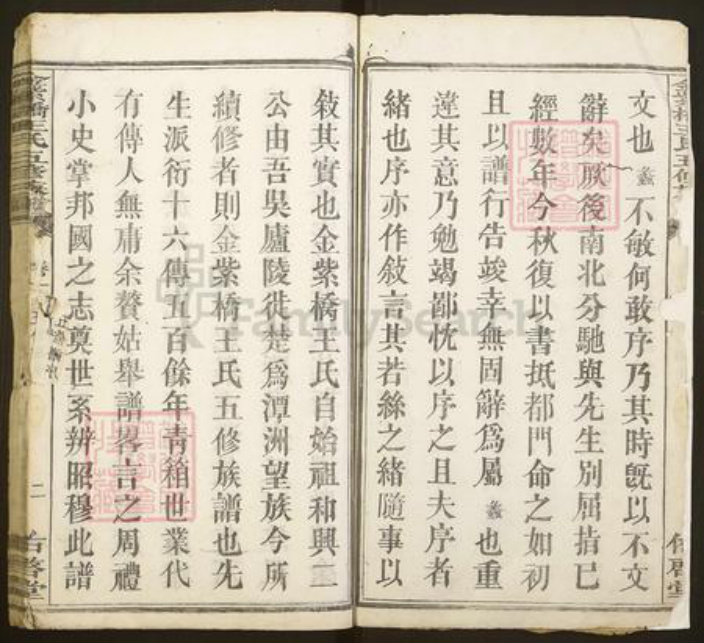 文也蠡不敏何敢序乃其時旣以不文
辭矣厥後南北分馳與先生別屈指已
經數年今秋復以書抵都門命之如初
且以譜行告竣幸無固辭爲屬蠡也重
違其意乃勉竭鄙忱以序之且夫序者
緒也序亦作敍言其若絲之緒隨事以
敍其實也金紫橋王氏自始祖和興
公由吾吳廬陵徙楚爲潭洲望族今所
續修者則金紫橋王氏五修族譜也先
生派衍十六傳五百餘年靑箱世業代
有傳人無庸余贅姑舉譜畧言之周禮
小史掌邦國之志奠世系辨昭穆此譜
金紫橋王氏五修族譜
二
啓堂
FamilySearch